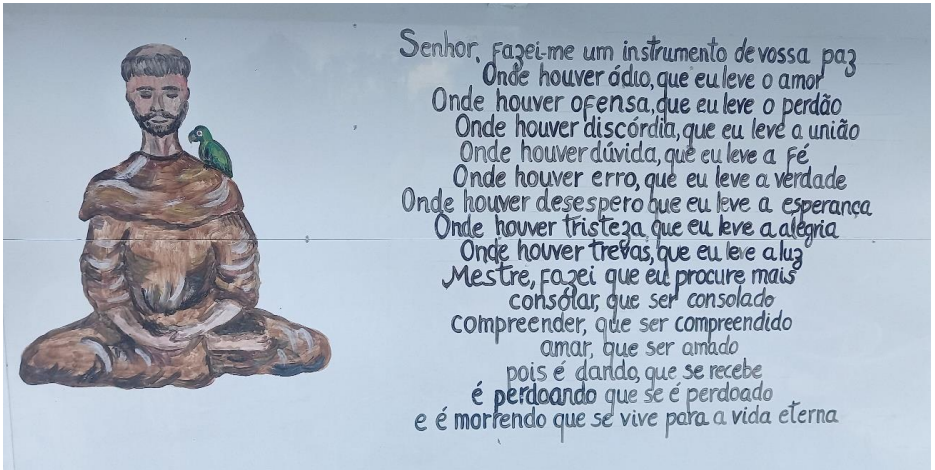 Senhor, fazei-me um instrumento de vossa paz
Onde houver ódio, que eu leve o amor
Onde houver ofensa, que eu leve o perdão
Onde houver discórdia, que eu leve a união
Onde houver dúvida, que eu leve a fé
Onde houver erro, que eu leve a verdade
Onde houver desespero que eu leve a esperança
Onde houver tristeza, que eu leve a alegria
Onde houver trevas, que eu leve a luz
Mestre, fazei que eu procure mais
consolar, que ser consolado
compreender, que ser compreendido
amar, que ser amado
pois é dando, que se recebe
é perdoando que se é perdoado
e é morrendo que se vive para a vida eterna